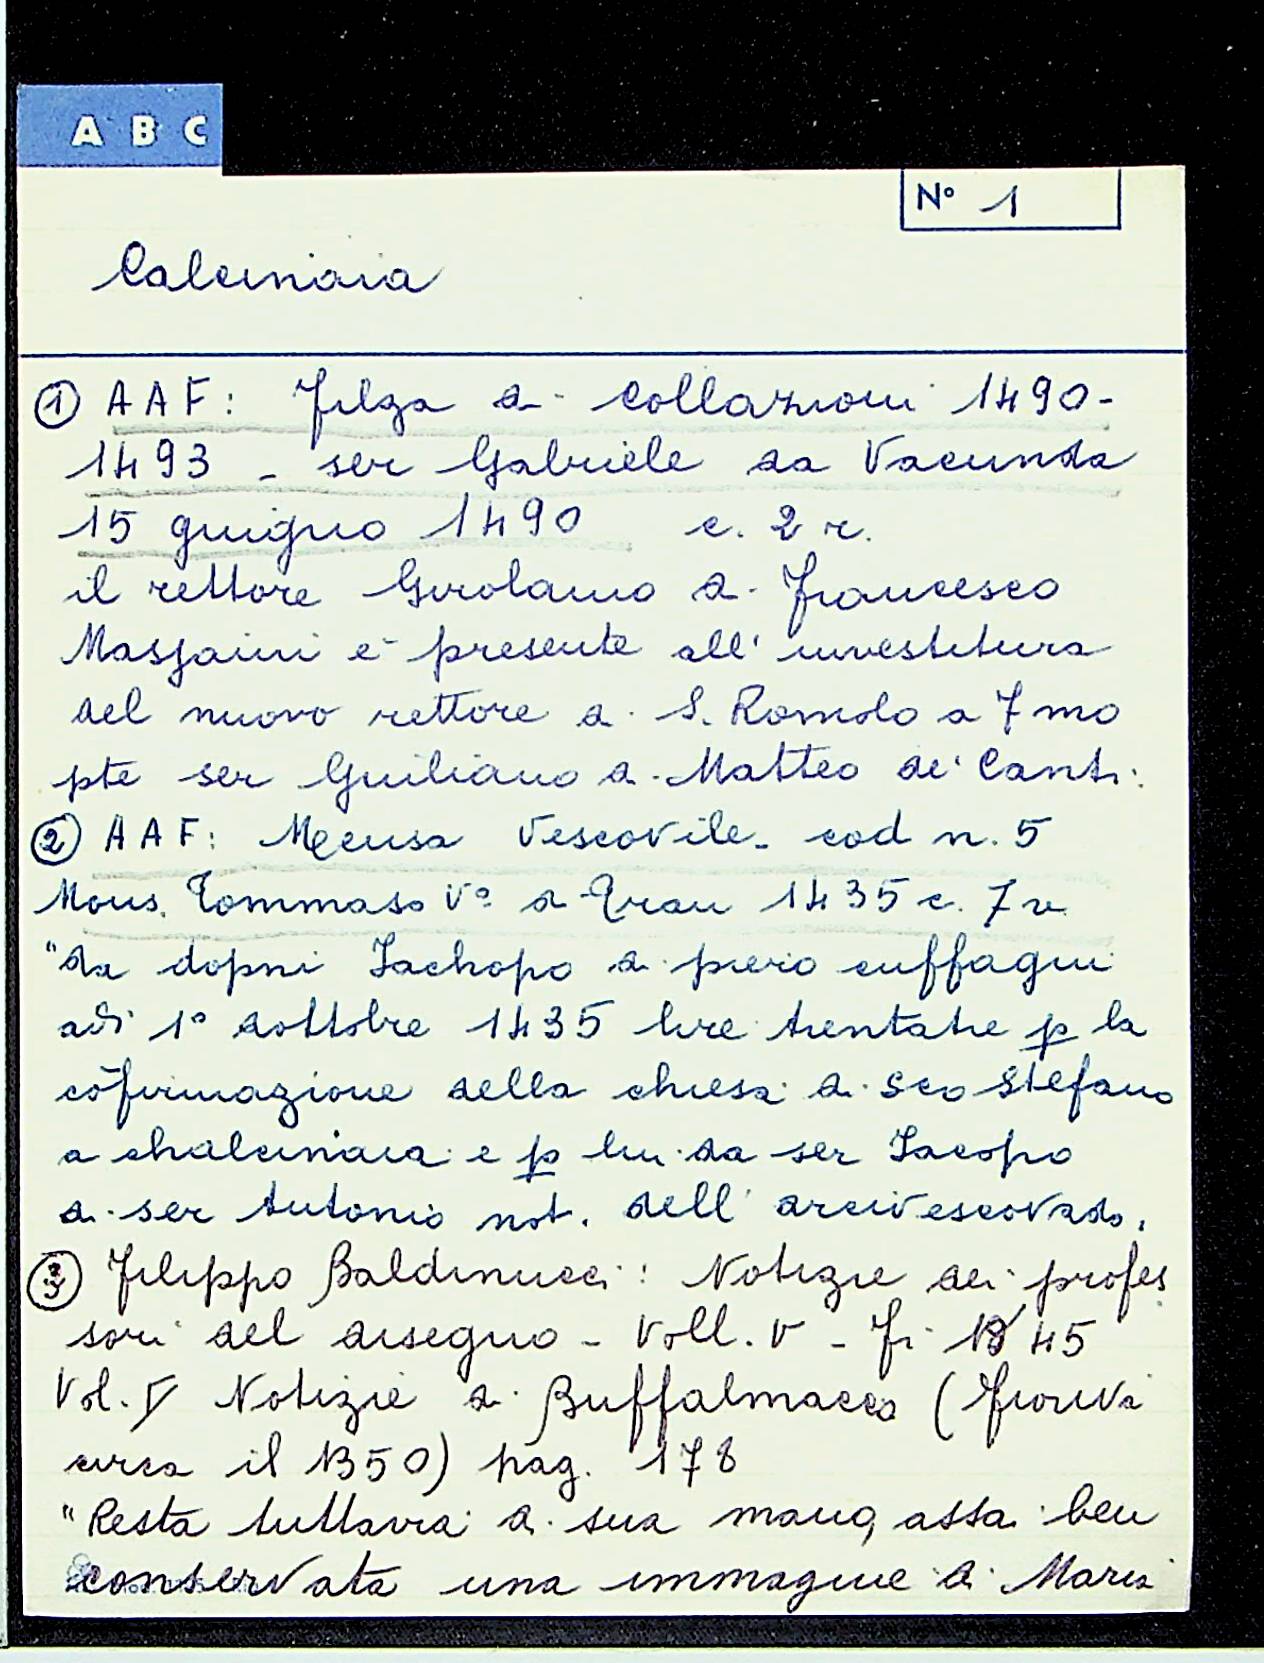 A B C
N° 1
Calcinaia
① AAF: Filza di Collazioni 1490-
1493 - ser Gabriele da Vacunda
15 giugno 1490 c. 2 r.
il rettore Girolamo di Francesco
Masjaini è presente all' investitura
del nuovo rettore di S. Romolo a 7mo
pte ser Giuliano di Matteo de' Canti:
② AAF: Mensa Vescovile - cod n. 5
Mons. Tommaso V° di Trau 1435 c. 7 v
"da dopni Iachopo di piero cuffagni
adì 1° dottobre 1435 lire trentatre p la
cōfirmazione della chiesa di Sco Stefano
a chalcinaia e p lui da ser Iacopo
di ser Antonio not. dell' arcivescovado.
③ Filippo Baldinucci: Notizie dei profes
sori del disegno - Voll. V - Fi 1845
Vol. I Notizie di Buffalmacco (fioriva
circa il 1350) pag. 178
"Resta tuttavia di sua mano, assai ben
conservata una immagine di Maria